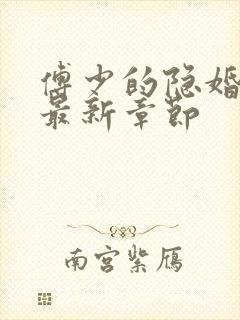 傅少的隐婚
最新章节
南宫紫鴈